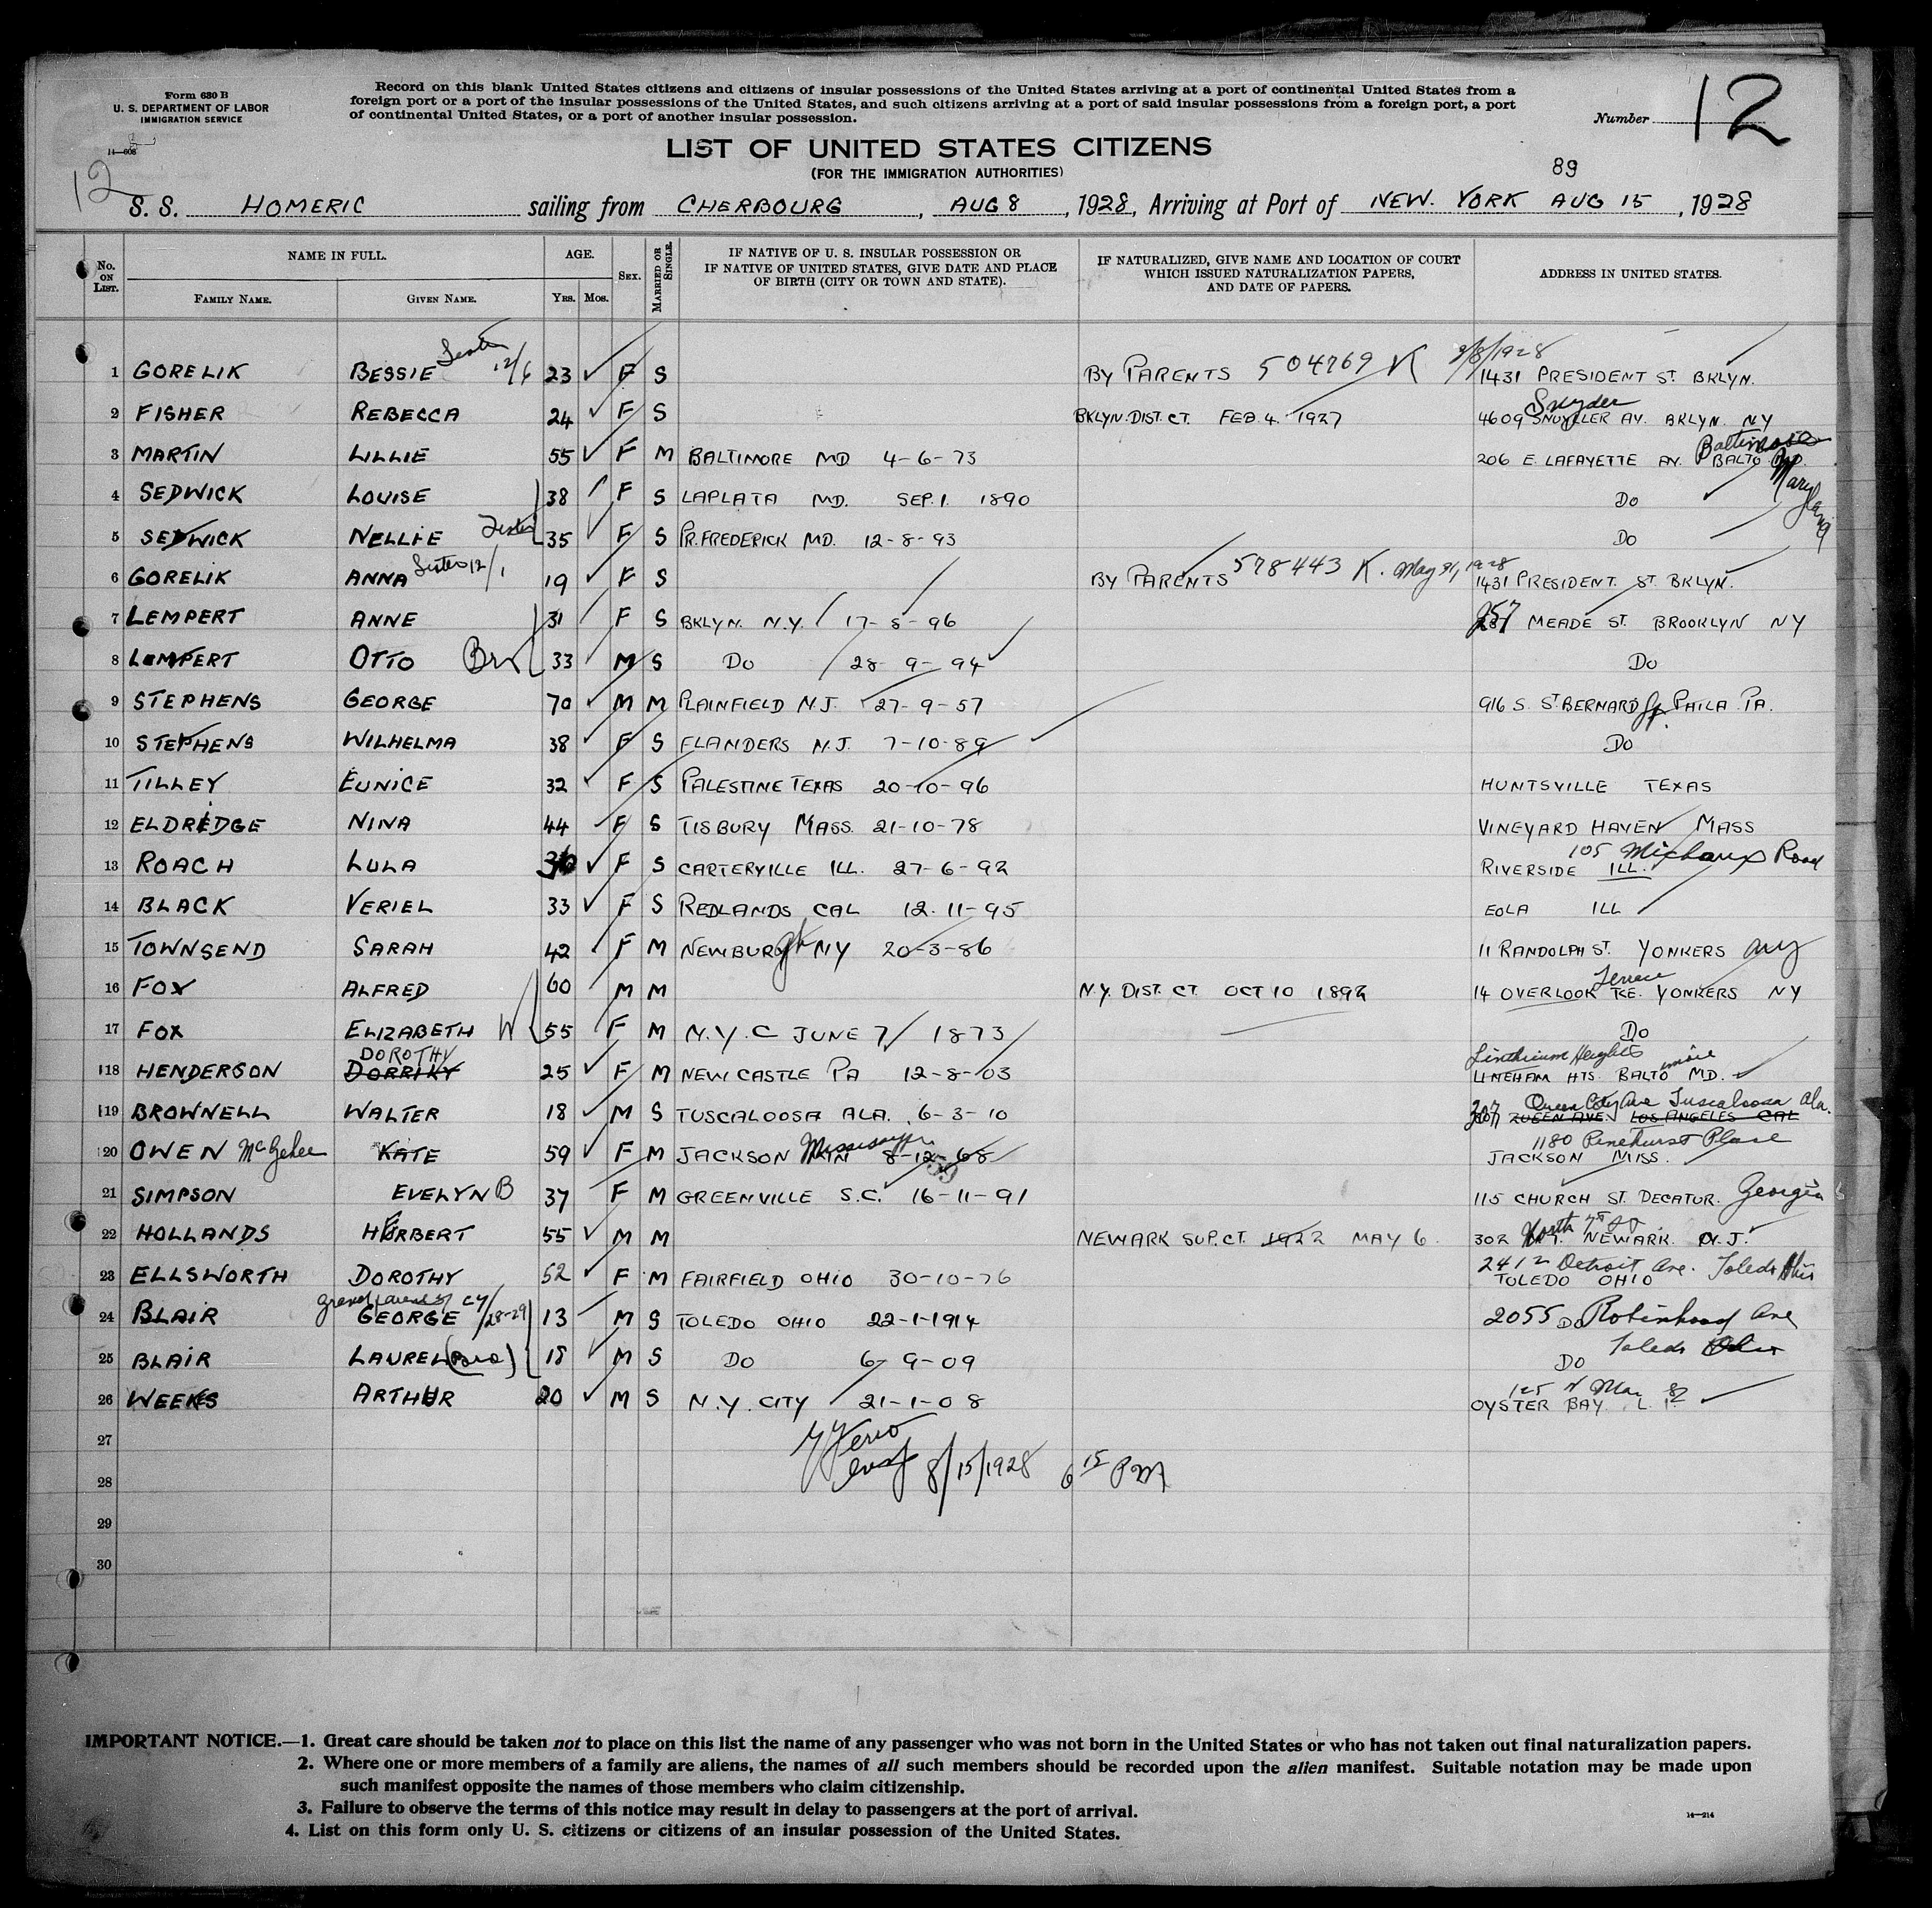 Form 630 B
U. S. DEPARTMENT OF LABOR
IMMIGRATION SERVICE
Record on this blank United States citizens and citizens of insular possessions of the United States arriving at a port of continental United States from a
foreign port or a port of the insular possessions of the United States, and such citizens arriving at a port of said insular possessions from a foreign port, a port
of continental United States, or a port of another insular possession.
Number 12
LIST OF UNITED STATES CITIZENS
(FOR THE IMMIGRATION AUTHORITIES)
89
12
S. S. HOMERIC sailing from CHERBOURG, AUG 8, 1928, Arriving at Port of NEW. YORK AUG 15, 1928
No. ON LIST. NAME IN FULL. FAMILY NAME. GIVEN NAME. AGE. YRS. MOS. SEX. MARRIED OR SINGLE. IF NATIVE OF U. S. INSULAR POSSESSION OR IF NATIVE OF UNITED STATES, GIVE DATE AND PLACE OF BIRTH (CITY OR TOWN AND STATE). IF NATURALIZED, GIVE NAME AND LOCATION OF COURT WHICH ISSUED NATURALIZATION PAPERS, AND DATE OF PAPERS. ADDRESS IN UNITED STATES.
1 GORELIK BESSIE Sister 12/6 23 F S BY PARENTS 504769 K 1431 PRESIDENT ST. BKLYN.
2 FISHER REBECCA 24 F S BKLYN. DIST. CT. FEB. 4. 1927 4609 Snyder AV. BKLYN. NY
3 MARTIN LILLIE 55 F M BALTIMORE MD 4-6-73 206 E. LAFAYETTE AV. BALTO MD. Baltimore Maryland
4 SEDWICK LOUISE 38 F S LAPLATA MD. SEP. 1. 1890 DO
5 SEDWICK NELLIE Sister 35 F S PR. FREDERICK MD. 12-8-93 DO
6 GORELIK ANNA Sister 12/1 19 F S BY PARENTS 578443 K. May 31, 1928 1431 PRESIDENT. ST. BKLYN.
7 LEMPERT ANNE 31 F S BKLYN. N.Y. 17-5-96 257 MEADE ST. BROOKLYN NY
8 LEMPERT OTTO Bro 33 M S DO 28-9-94 DO
9 STEPHENS GEORGE 70 M M PLAINFIELD N.J. 27-9-57 916 S. ST BERNARD PHILA. PA.
10 STEPHENS WILHELMA 38 F S FLANDERS N.J. 7-10-89 DO
11 TILLEY EUNICE 32 F S PALESTINE TEXAS 20-10-96 HUNTSVILLE TEXAS
12 ELDREDGE NINA 44 F S TISBURY MASS. 21-10-78 VINEYARD HAVEN MASS
13 ROACH LULA 36 F S CARTERVILLE ILL. 27-6-92 105 Michaux Road RIVERSIDE ILL.
14 BLACK VERIEL 33 F S REDLANDS CAL 12.11-95 EOLA ILL
15 TOWNSEND SARAH 42 F M NEWBURGH NY 20-3-86 11 RANDOLPH ST. YONKERS NY
16 FOX ALFRED 60 M M N.Y. DIST. CT. OCT 10 1892 14 OVERLOOK TCE. Terrace YONKERS NY
17 FOX ELIZABETH W 55 F M N.Y.C JUNE 7 1873 DO
18 HENDERSON DOROTHY 25 F M NEW CASTLE PA 12-8-03 Linthicum Heights LINEHAM HTS. BALTOmore MD.
19 BROWNELL WALTER 18 M S TUSCALOOSA ALA. 6-3-10 Queen City Ave Tuscaloosa Ala. QUEEN AVE LOS ANGELES CAL
20 OWEN McGehee KATE 59 F M JACKSON Mississippi 8-12-68 1180 Pinehurst Place JACKSON MISS.
21 SIMPSON EVELYN B 37 F M GREENVILLE S.C. 16-11-91 115 CHURCH ST. DECATUR. Georgia
22 HOLLANDS HERBERT 55 M M NEWARK SUP. CT. 1922 MAY 6 302 North 7th St NEWARK. N.J.
23 ELLSWORTH DOROTHY 52 F M FAIRFIELD OHIO 30-10-76 2412 Detroit Ave. Toledo Ohio TOLEDO OHIO
24 BLAIR GEORGE 13 M S TOLEDO OHIO 22-1-1914 2055 DO Robinhood Ave
25 BLAIR LAUREL (Bro) 18 M S DO 6-9-09 DO Toledo Ohio
26 WEEKS ARTHUR 20 M S N.Y. CITY 21-1-08 OYSTER BAY L.I.
27
8/15/1928 6 15 PM
28
29
30
IMPORTANT NOTICE.—1. Great care should be taken not to place on this list the name of any passenger who was not born in the United States or who has not taken out final naturalization papers.
2. Where one or more members of a family are aliens, the names of all such members should be recorded upon the alien manifest. Suitable notation may be made upon
such manifest opposite the names of those members who claim citizenship.
3. Failure to observe the terms of this notice may result in delay to passengers at the port of arrival.
4. List on this form only U. S. citizens or citizens of an insular possession of the United States.
14—214